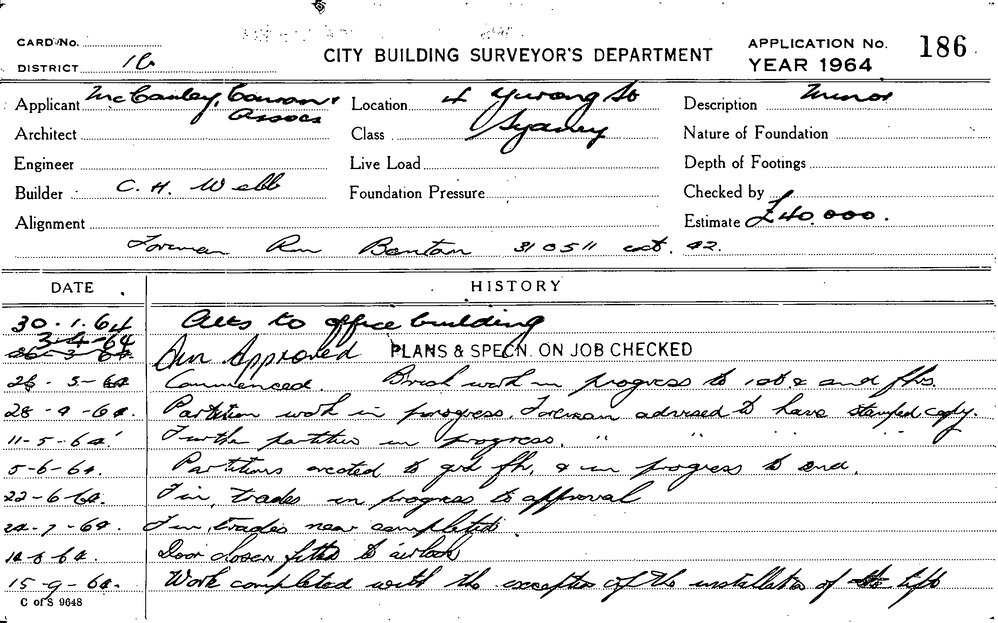 CARD No.
DISTRICT 16
CITY BUILDING SURVEYOR'S DEPARTMENT
APPLICATION No. 186
YEAR 1964
Applicant McCauley, Cowan & Assocs
Location 4 Yurong St Sydney
Description Minor
Architect
Class
Nature of Foundation
Engineer
Live Load
Depth of Footings
Builder C. H. Webb
Foundation Pressure
Checked by
Alignment
Estimate £40,000.
Foreman Banton 310511 ext. 42.
DATE HISTORY
30.1.64 Alts to office building
3-4-64
26-3-64 Approved PLANS & SPECN. ON JOB CHECKED
Commenced. Brick work in progress to 1st & 2nd flrs.
28-4-64. Partition work in progress. Foreman advised to have stamped copy.
11-5-64 Further partition in progress. " " " "
5-6-64. Partitions erected to grd flr, & in progress to 2nd.
22-6-64. Fin, trades in progress to approval
24-7-64. Fin, trades near completed.
14-8-64. Door closer fitted to airlock
15-9-64. Work completed with the exception of the installation of the lift
C of S 9648